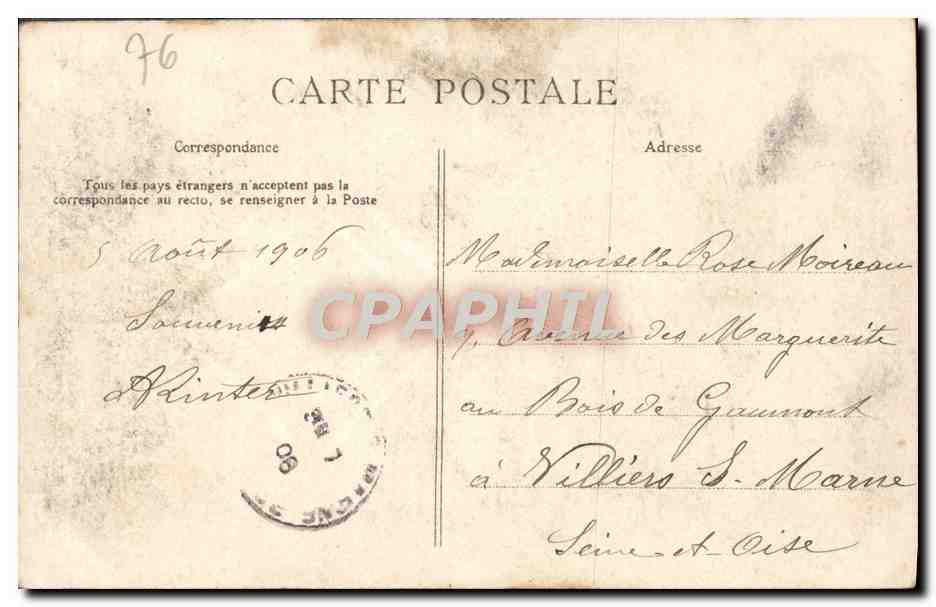 76
CARTE POSTALE
Correspondance
Tous les pays étrangers n'acceptent pas la
correspondance au recto, se renseigner à la Poste
5 Août 1906
Souvenirs
AKinter
Adresse
Mademoiselle Rose Moireau
9, Avenue des Marguerite
au Bois de Gaumont
à Villiers S. Marne
Seine-et-Oise
CPAPHIL
7
06